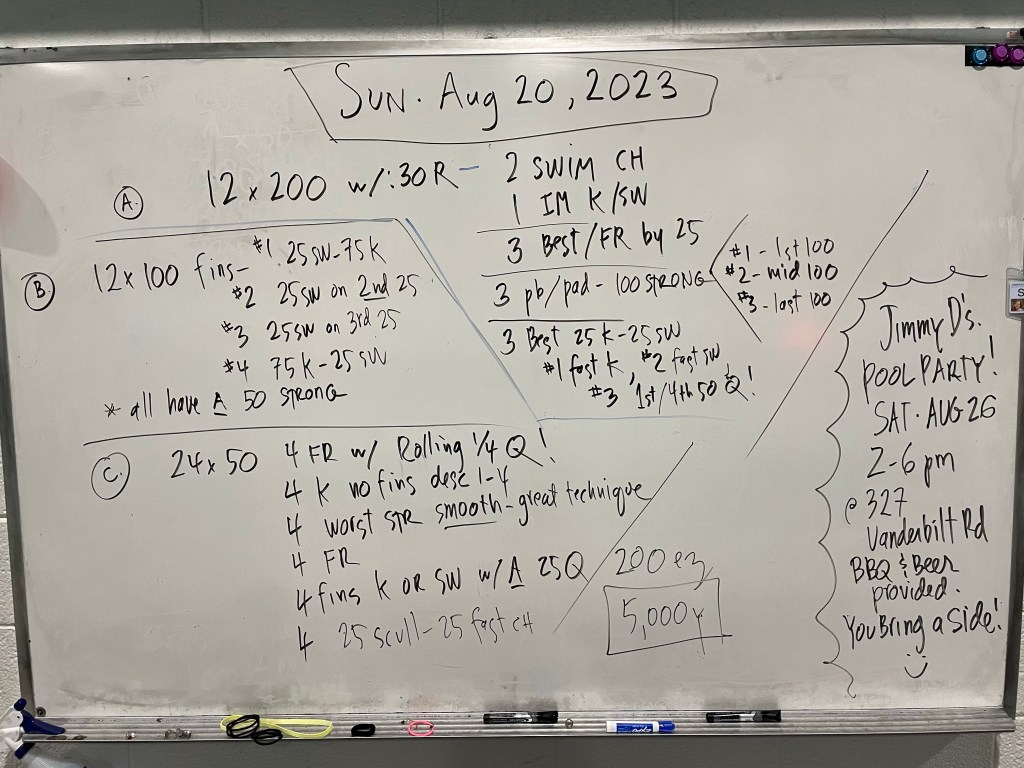 SUN. Aug 20, 2023
A. 12 x 200 w/:30 R - 2 SWIM CH
1 IM K/SW
3 Best/FR by 25
3 pb/pad - 100 STRONG
#1 - 1st 100
#2 - mid 100
#3 - last 100
3 Best 25 K - 25 SW
#1 fast K, #2 fast SW
#3 1st/4th 50 Q!
B. 12 x 100 fins - #1 25 SW - 75 K
#2 25 SW on 2nd 25
#3 25 SW on 3rd 25
#4 75 K - 25 SW
* all have A 50 STRONG
C. 24 x 50 4 FR w/ Rolling 1/4 Q!
4 K no fins desc 1-4
4 worst STR smooth - great technique
4 FR
4 fins K OR SW w/ A 25 Q
4 25 scull - 25 fast CH
200 ez
5,000 y
Jimmy D's.
POOL PARTY!
SAT. AUG 26
2-6 pm
@ 327
Vanderbilt Rd
BBQ & Beer
provided.
You Bring a Side!